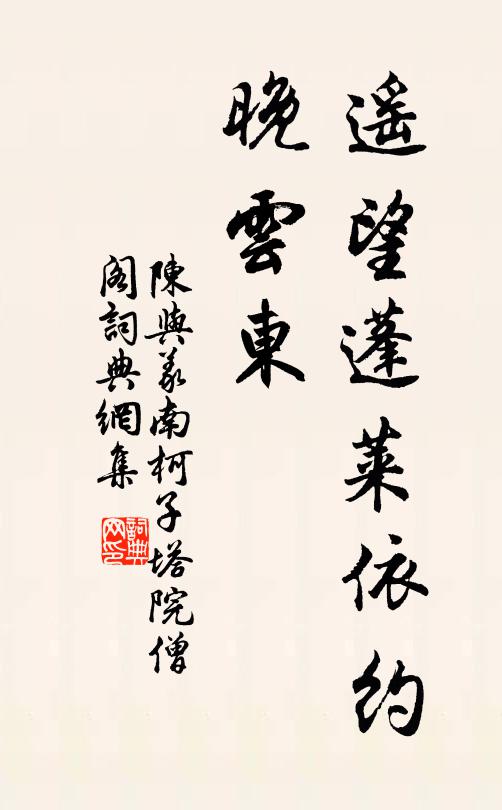 遥望蓬萊依約
晚雲東
陳與義南柯子塔院僧
閣詞典網集
詞典
网印